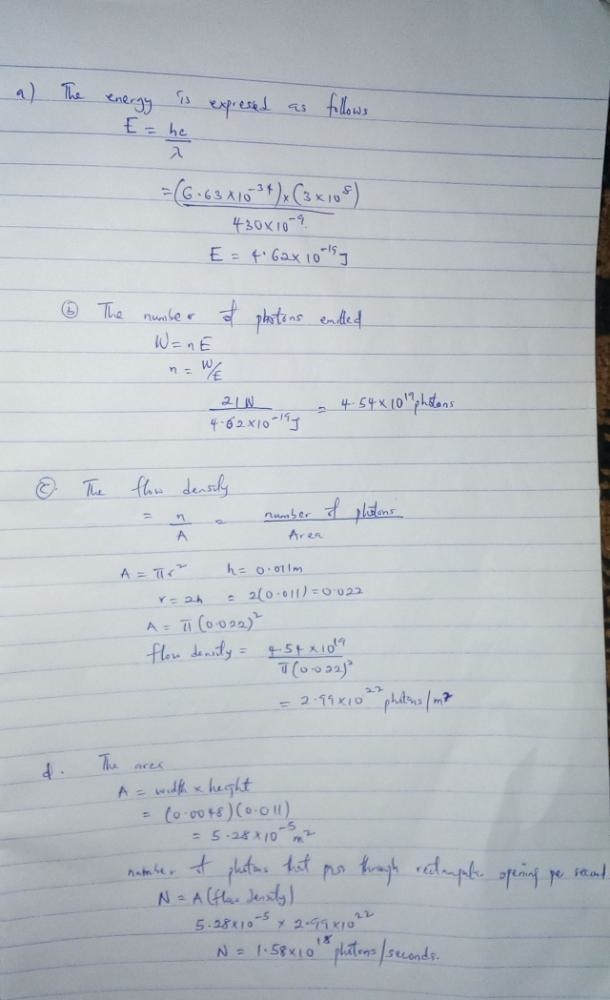 a) The energy is expresed as follows
E = hc
λ
= (6.63 x 10^-34) x (3 x 10^8)
430 x 10^-9
E = 4.62 x 10^-19 J
(b) The number of photons emitted
W = nE
n = W/E
21 W
4.62 x 10^-19 J
= 4.54 x 10^19 photons
(c) The flow density
= n = number of photons
A Area
A = πr² h = 0.011m
r = 2h = 2(0.011) = 0.022
A = π(0.022)²
flow density = 4.54 x 10^19
π(0.022)²
= 2.99 x 10^22 photons/m²
d. The area
A = width x height
= (0.0048)(0.011)
= 5.28 x 10^-5 m²
number of photons that pass through rectangular opening per second
N = A(flow density)
5.28 x 10^-5 x 2.99 x 10^22
N = 1.58 x 10^18 photons/seconds.